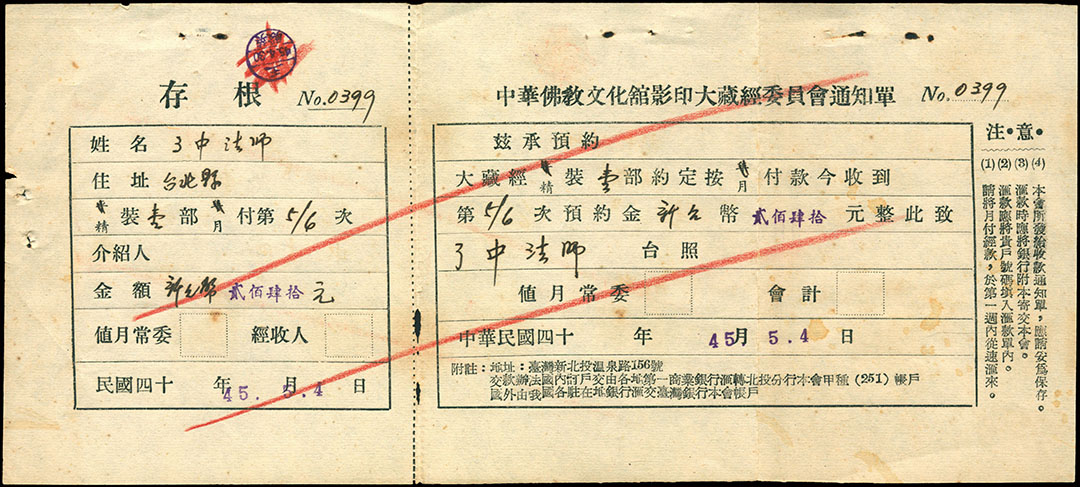 存根 No.0399
姓名 了中法師
住址 台北縣
精裝壹部 月付第5/6次
介紹人
金額 新台幣 貳佰肆拾 元
值月常委 經收人
民國四十 年 月 日
45. 5.4
中華佛教文化館影印大藏經委員會通知單 No.0399
茲承預約
大藏經 精 裝壹部約定按 月 付款今收到
第5/6次預約金新台幣 貳佰肆拾 元整此致
了中法師 台照
值月常委 會計
中華民國四十 年 45 月 5.4 日
附註：地址：臺灣新北投溫泉路156號
交款辦法國內訂戶交由各地第一商業銀行滙轉北投分行本會甲種（251）帳戶
國外由我國各駐在地銀行滙交臺灣銀行本會帳戶
注•意•
(1)(2)(3)(4)
本會所發給收款通知單，應請妥為保存。
滙款時應將銀行附本寄交本會。
滙款應將貴戶號碼填入滙款單內。
請將月付經款，於第一週內從速滙來。